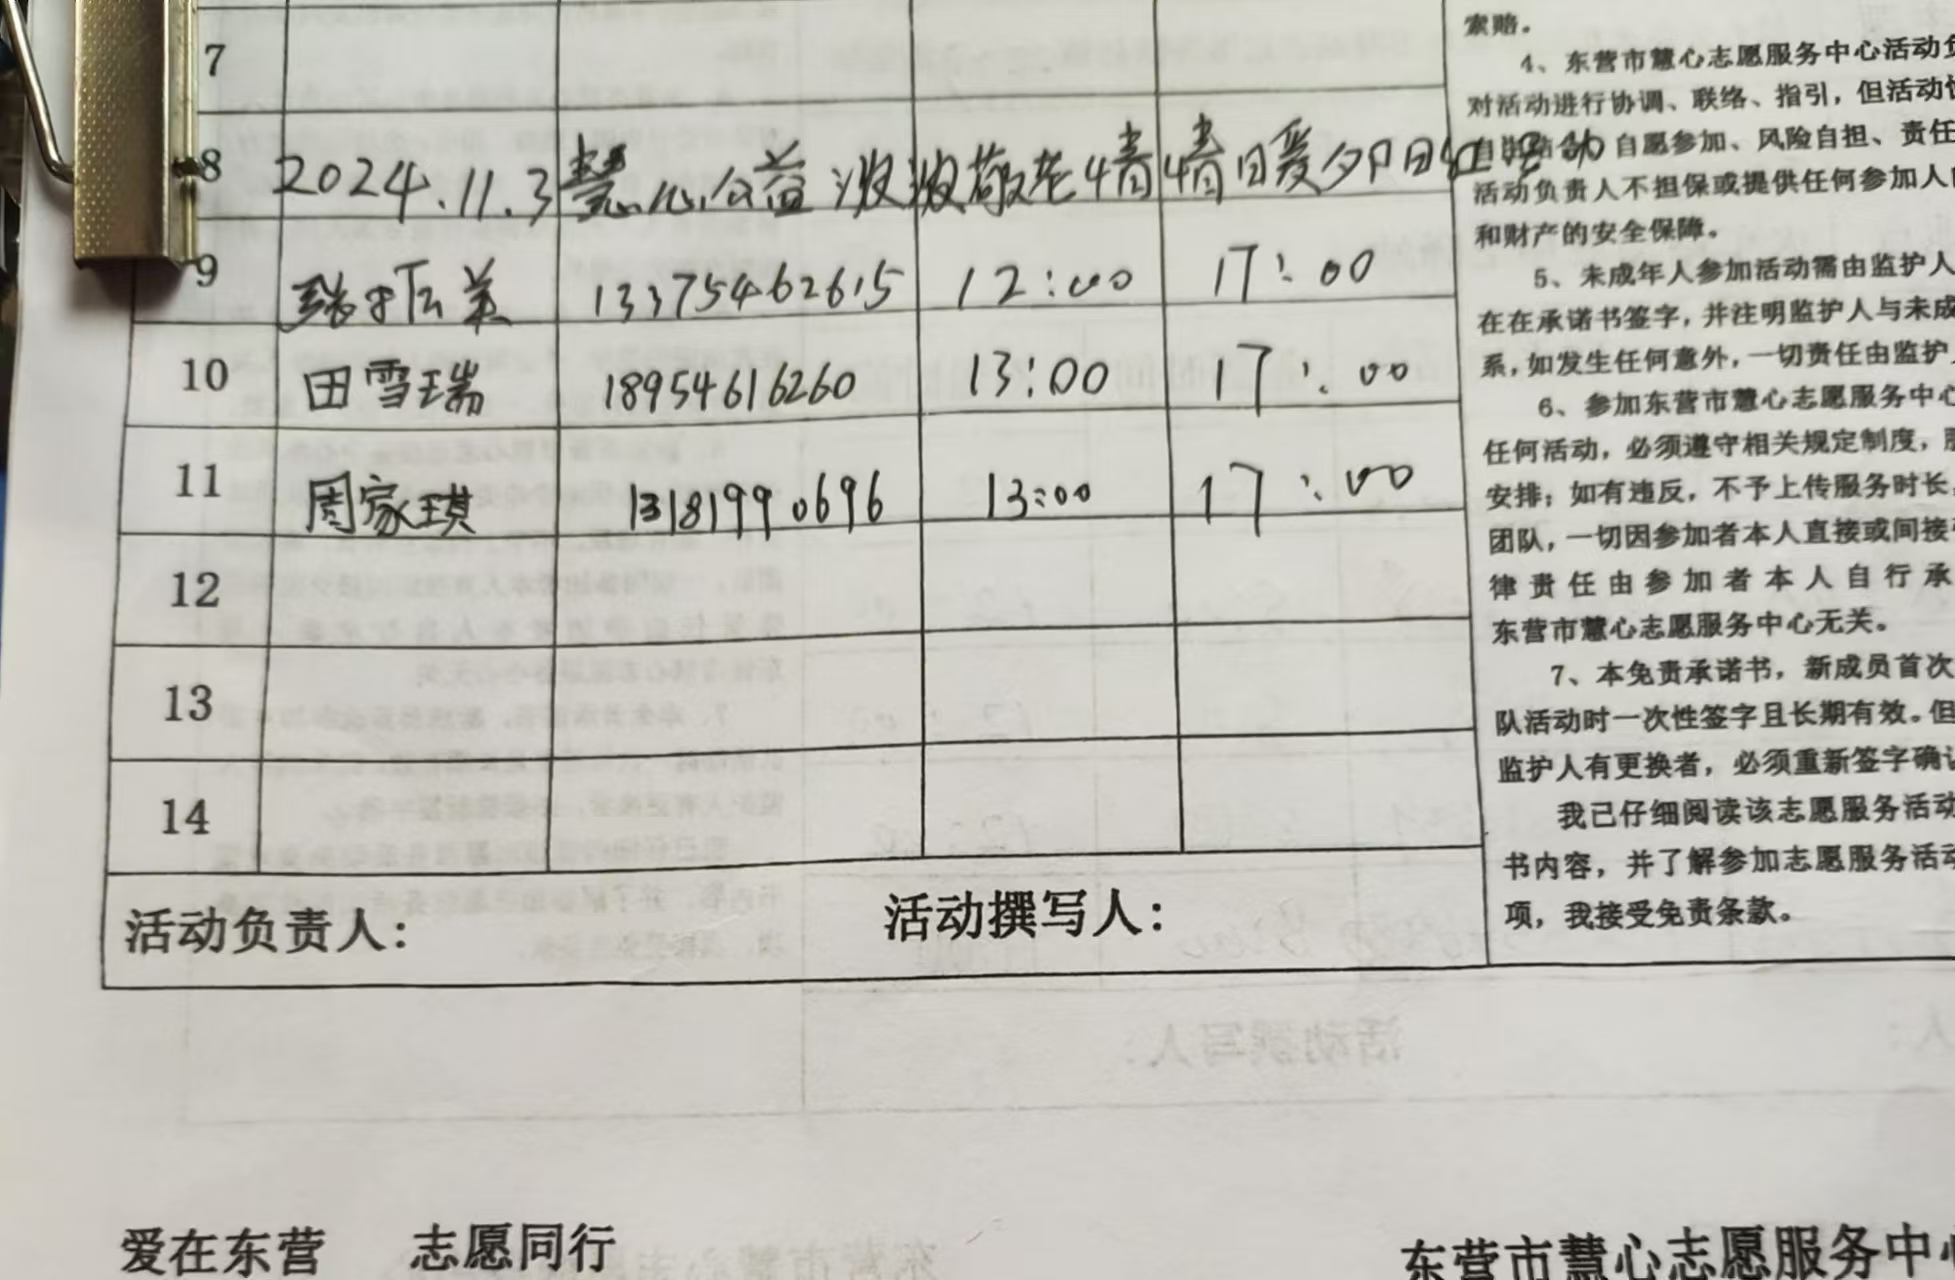 7
8 2024.11.3慧心公益浓浓敬老情情日暖夕阳红活动
9 13375462615 12:00 17:00
10 田雪瑞 18954616260 13:00 17:00
11 周家琪 13181990696 13:00 17:00
12
13
14
活动负责人: 活动撰写人:
索赔。
4、东营市慧心志愿服务中心活动负
对活动进行协调、联络、指引，但活动
自愿参加、风险自担、责任
活动负责人不担保或提供任何参加人
和财产的安全保障。
5、未成年人参加活动需由监护人
在在承诺书签字，并注明监护人与未成
系，如发生任何意外，一切责任由监护
6、参加东营市慧心志愿服务中心
任何活动，必须遵守相关规定制度，服
安排；如有违反，不予上传服务时长
团队，一切因参加者本人直接或间接
律责任由参加者本人自行承
东营市慧心志愿服务中心无关。
7、本免责承诺书，新成员首次
队活动时一次性签字且长期有效。但
监护人有更换者，必须重新签字确认
我已仔细阅读该志愿服务活动
书内容，并了解参加志愿服务活动
项，我接受免责条款。
活动撰写人:
爱在东营 志愿同行
东营市慧心志愿服务中心